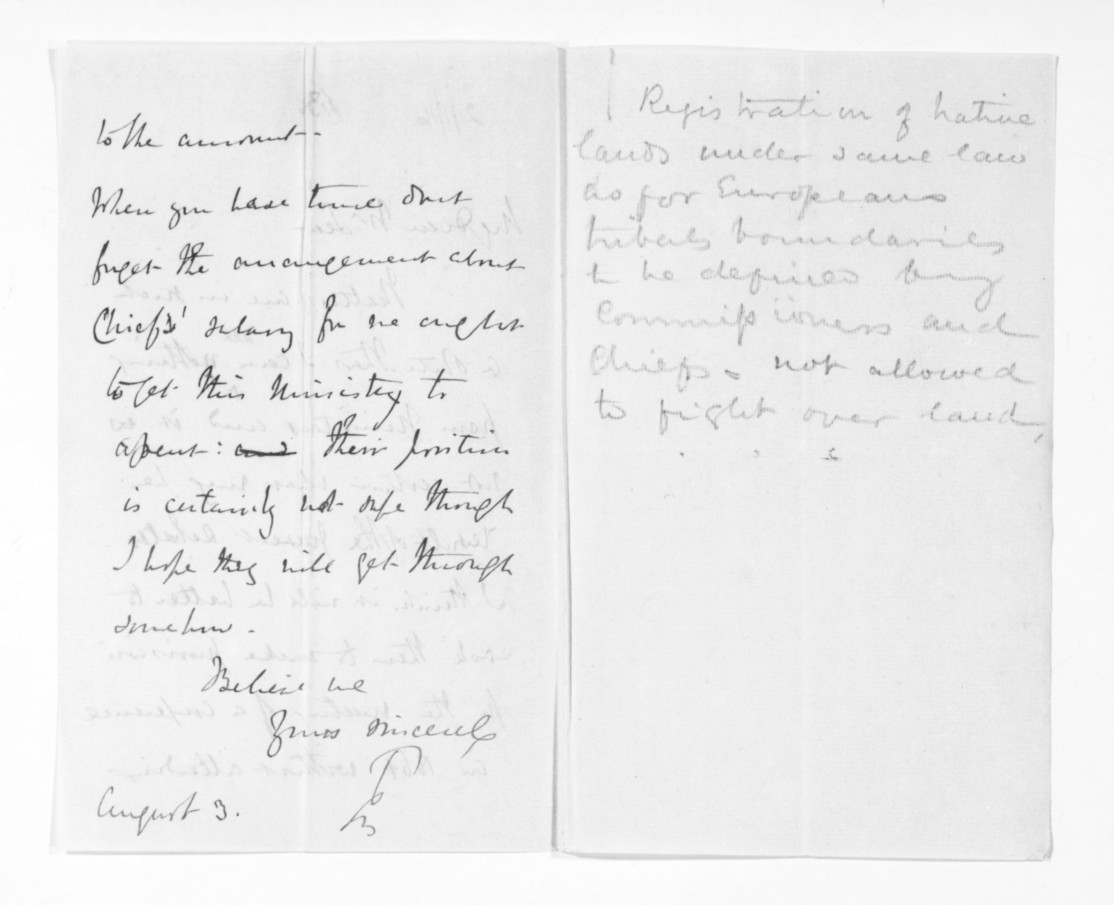 to the amount -
When you have time dont
forget the arrangement about
Chiefs' salary for we ought
to get this Ministry to
assent: and their position
is certainly not safe though
I hope they will get through
somehow -
Believe me
Yours sincerely
August 3.
Registration of native
lands under same law
as for Europeans
tribal boundaries
to be defined by
Commissioners and
Chiefs - not allowed
to fight over land,